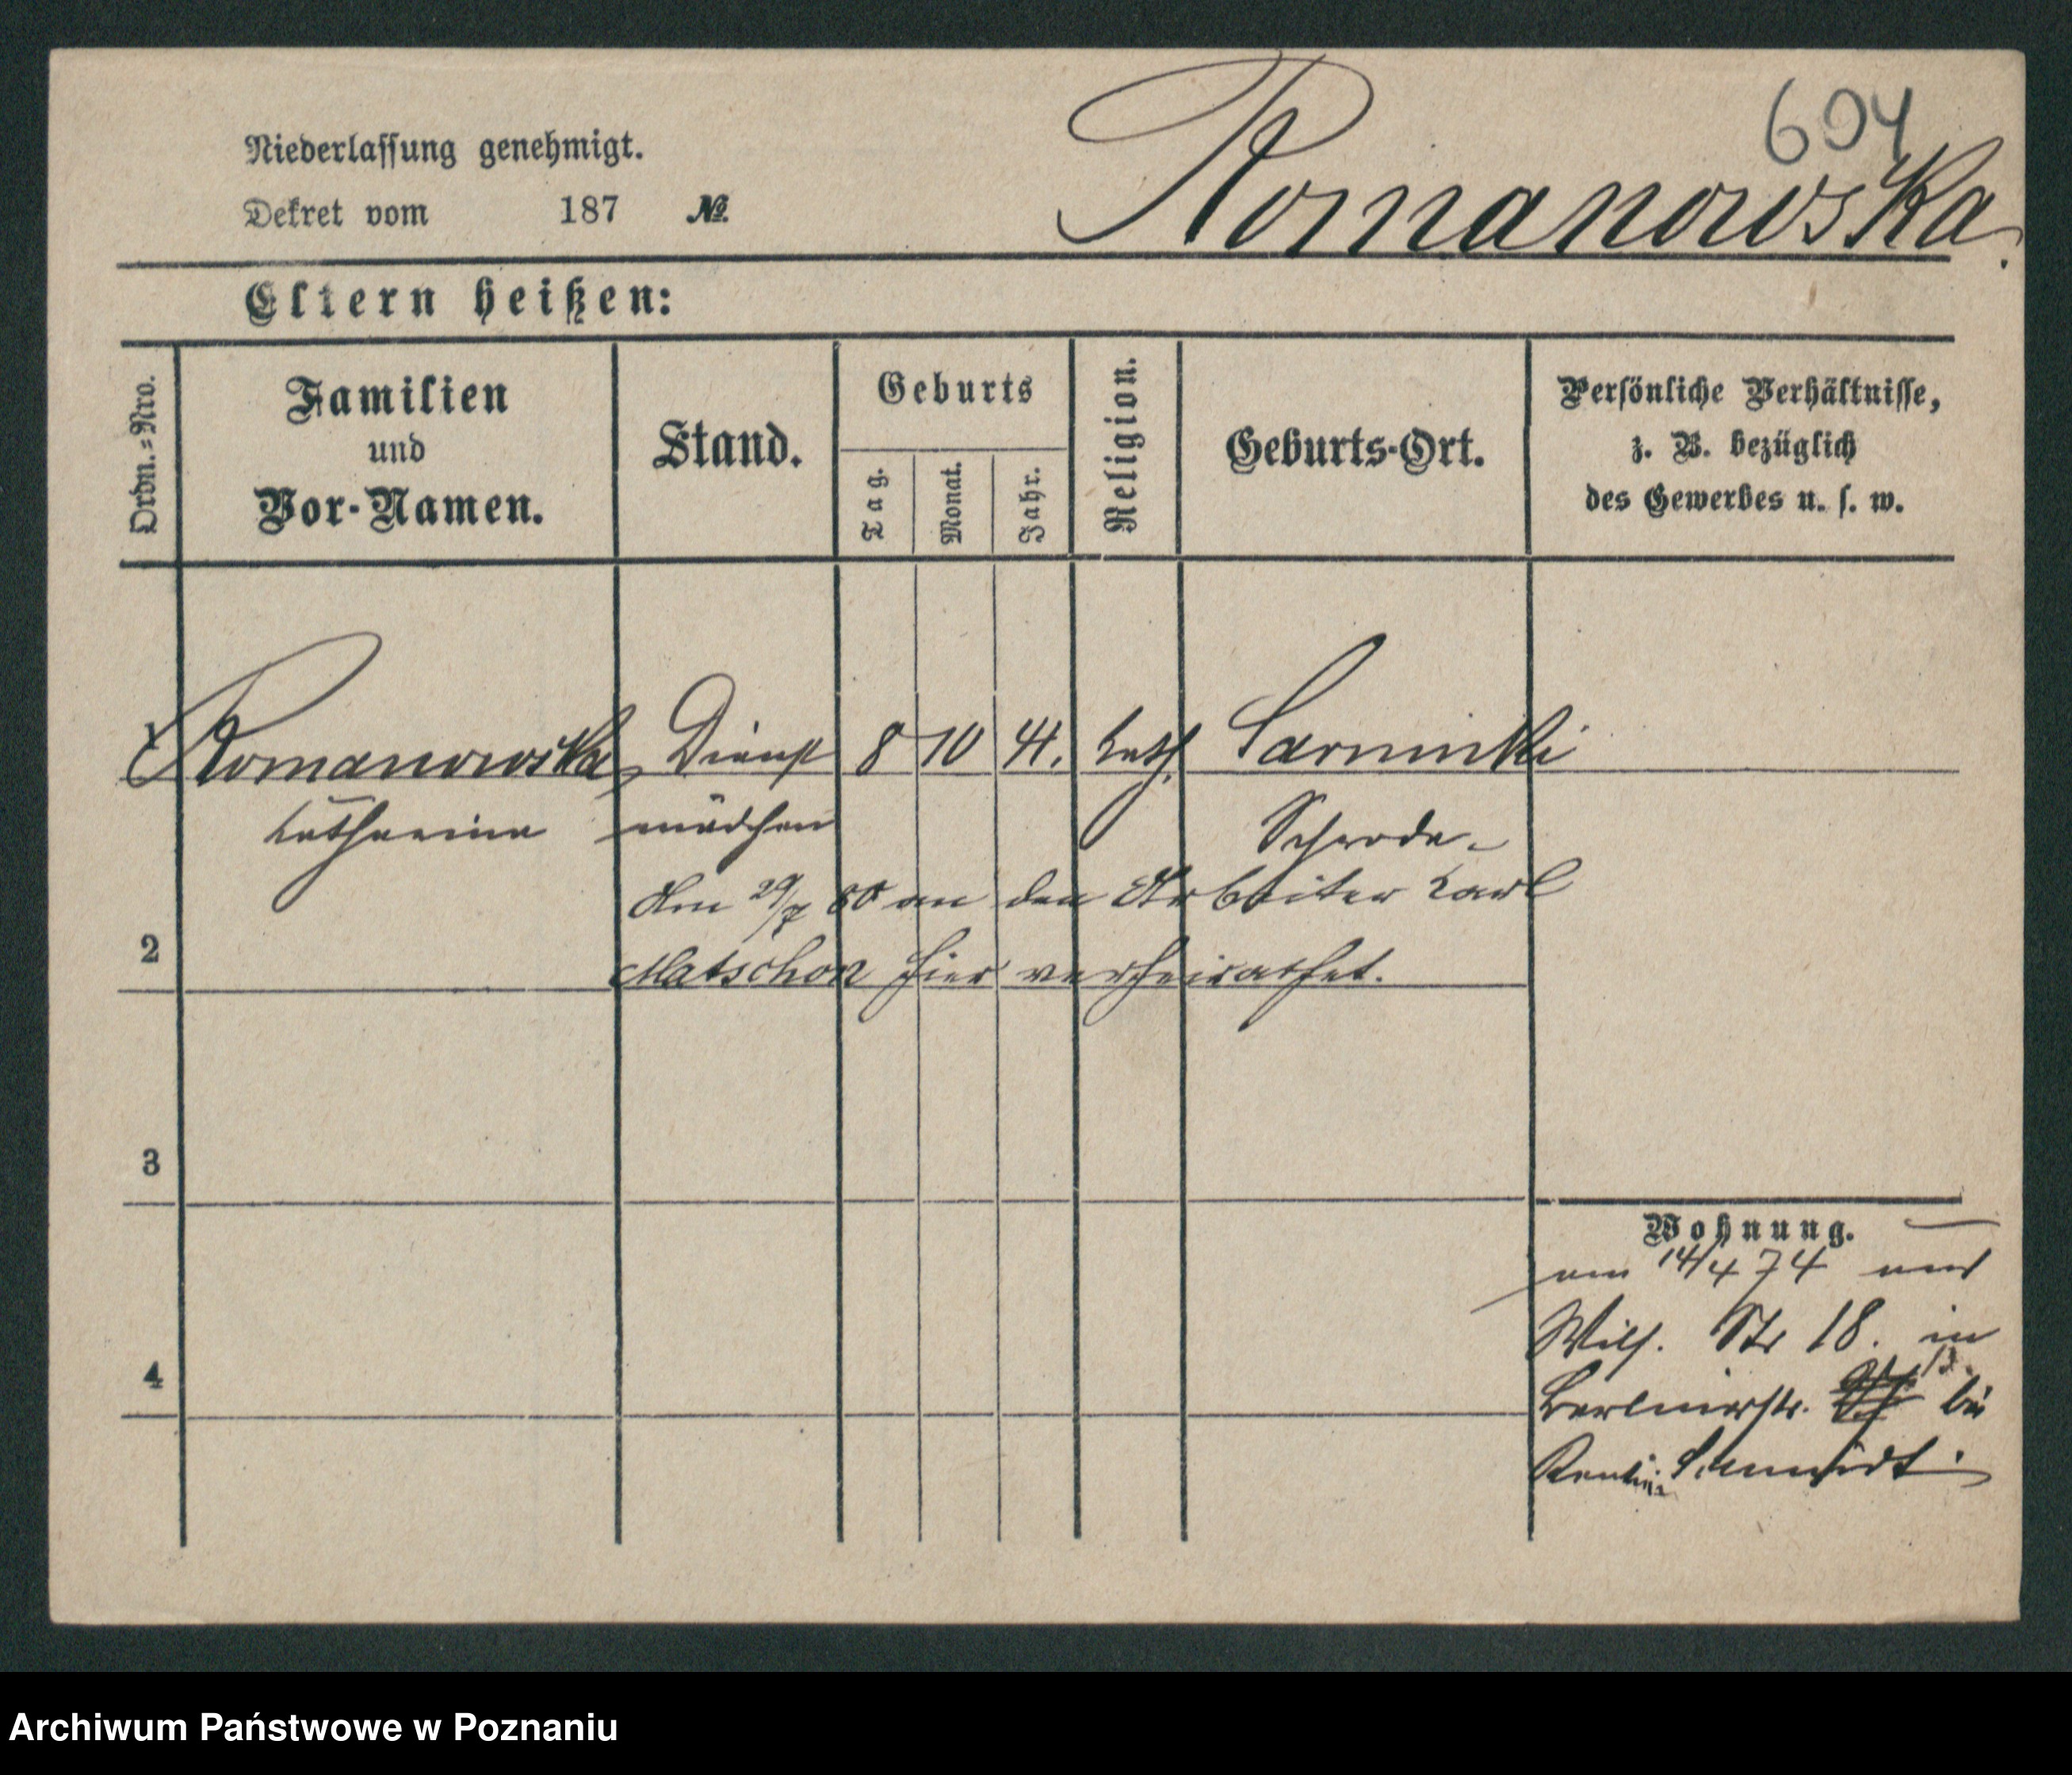 604
Niederlassung genehmigt.
Dekret vom 187 №
Romanowska.
Eltern heißen:
Ordn.=Nro.
Familien und Vor-Namen.
Stand.
Geburts
Tag.
Monat.
Jahr.
Religion.
Geburts-Ort.
Persönliche Verhältnisse,
z. B. bezüglich
des Gewerbes u. s. w.
1 Romanowska Dienst 8 10 41. kath. Sarminki
Katharina mädchen Schroda.
Am 29/7 80 an den Arbeiter Karl
2 Matschon hier verheirathet.
3
4
Wohnung.
am 14/4 74 von
Wilh. Str 18. in
Berlinerstr. 13. bei
Schmidt.